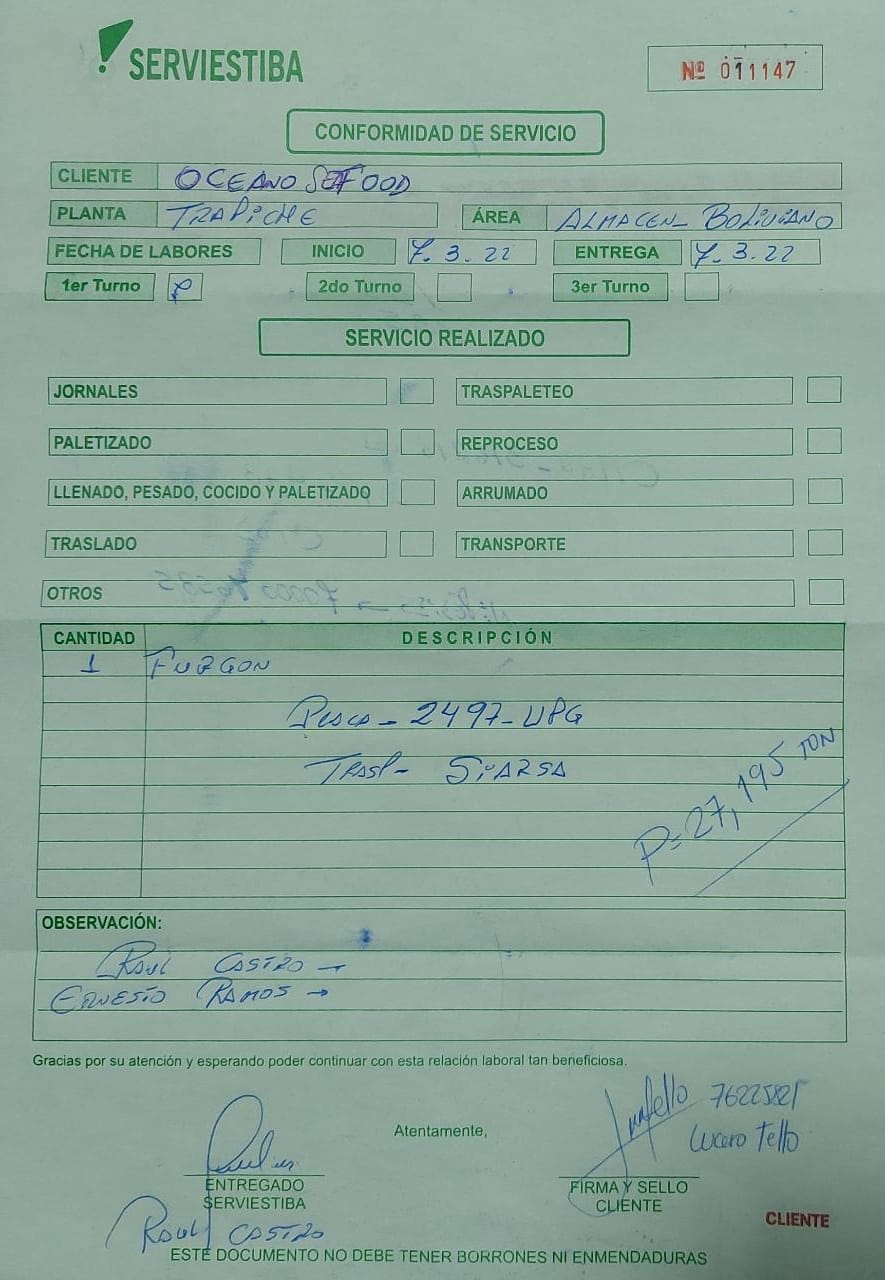 SERVIESTIBA
Nº 011147
CONFORMIDAD DE SERVICIO
CLIENTE OCEANO SEFOOD
PLANTA TRAPICHE ÁREA ALMACEN_ BOLIVIANO
FECHA DE LABORES INICIO 7.3.22 ENTREGA 7.3.22
1er Turno P 2do Turno 3er Turno
SERVICIO REALIZADO
JORNALES TRASPALETEO
PALETIZADO REPROCESO
LLENADO, PESADO, COCIDO Y PALETIZADO ARRUMADO
TRASLADO TRANSPORTE
OTROS
CANTIDAD DESCRIPCIÓN
1 FURGON
2497-UPG
TRASP- SIARSA
P= 27,195 TON
OBSERVACIÓN:
RAUL CASTRO →
ERNESTO RAMOS →
Gracias por su atención y esperando poder continuar con esta relación laboral tan beneficiosa.
Atentamente,
76225821
Lucero Tello
ENTREGADO
SERVIESTIBA
RAUL CASTRO
FIRMA Y SELLO
CLIENTE
CLIENTE
ESTE DOCUMENTO NO DEBE TENER BORRONES NI ENMENDADURAS